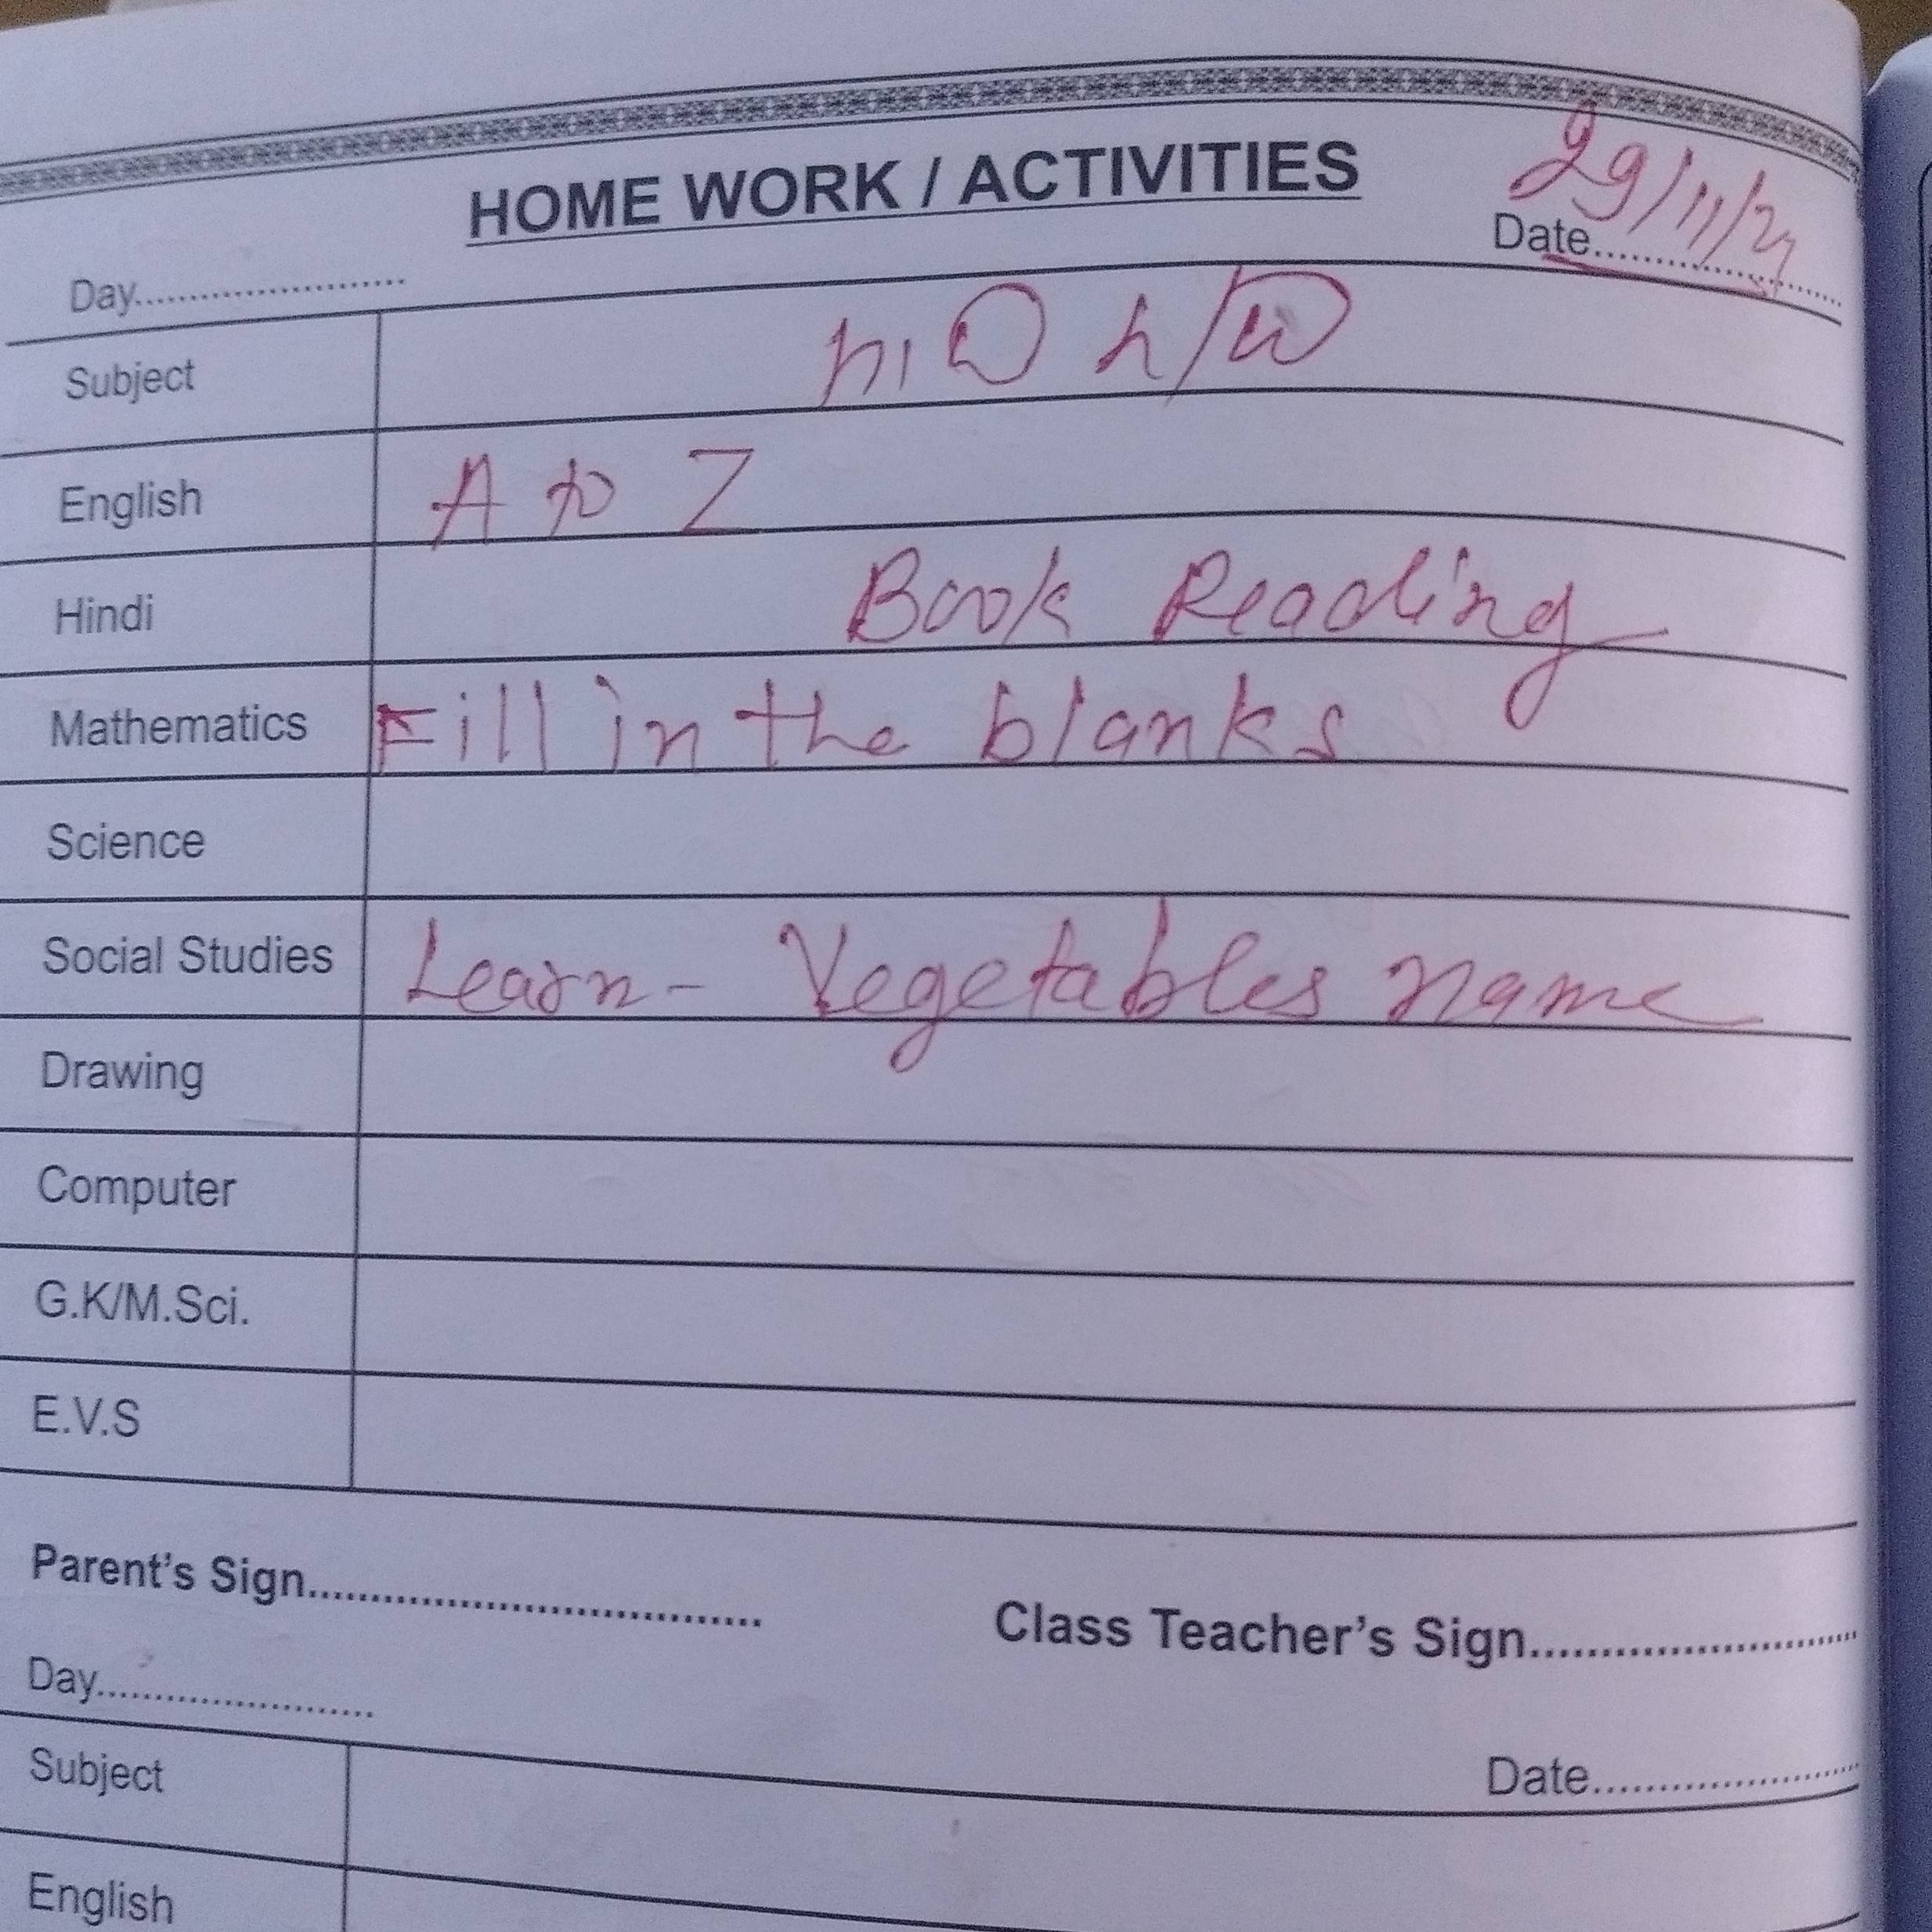 HOME WORK / ACTIVITIES
Day.......................... Date.......................... 29/11/21
Subject
English A to Z
Hindi Book Reading
Mathematics Fill in the blanks
Science
Social Studies Learn - Vegetables name
Drawing
Computer
G.K/M.Sci.
E.V.S
Parent's Sign.......................................... Class Teacher's Sign..............................
Day..........................
Date..........................
Subject
English